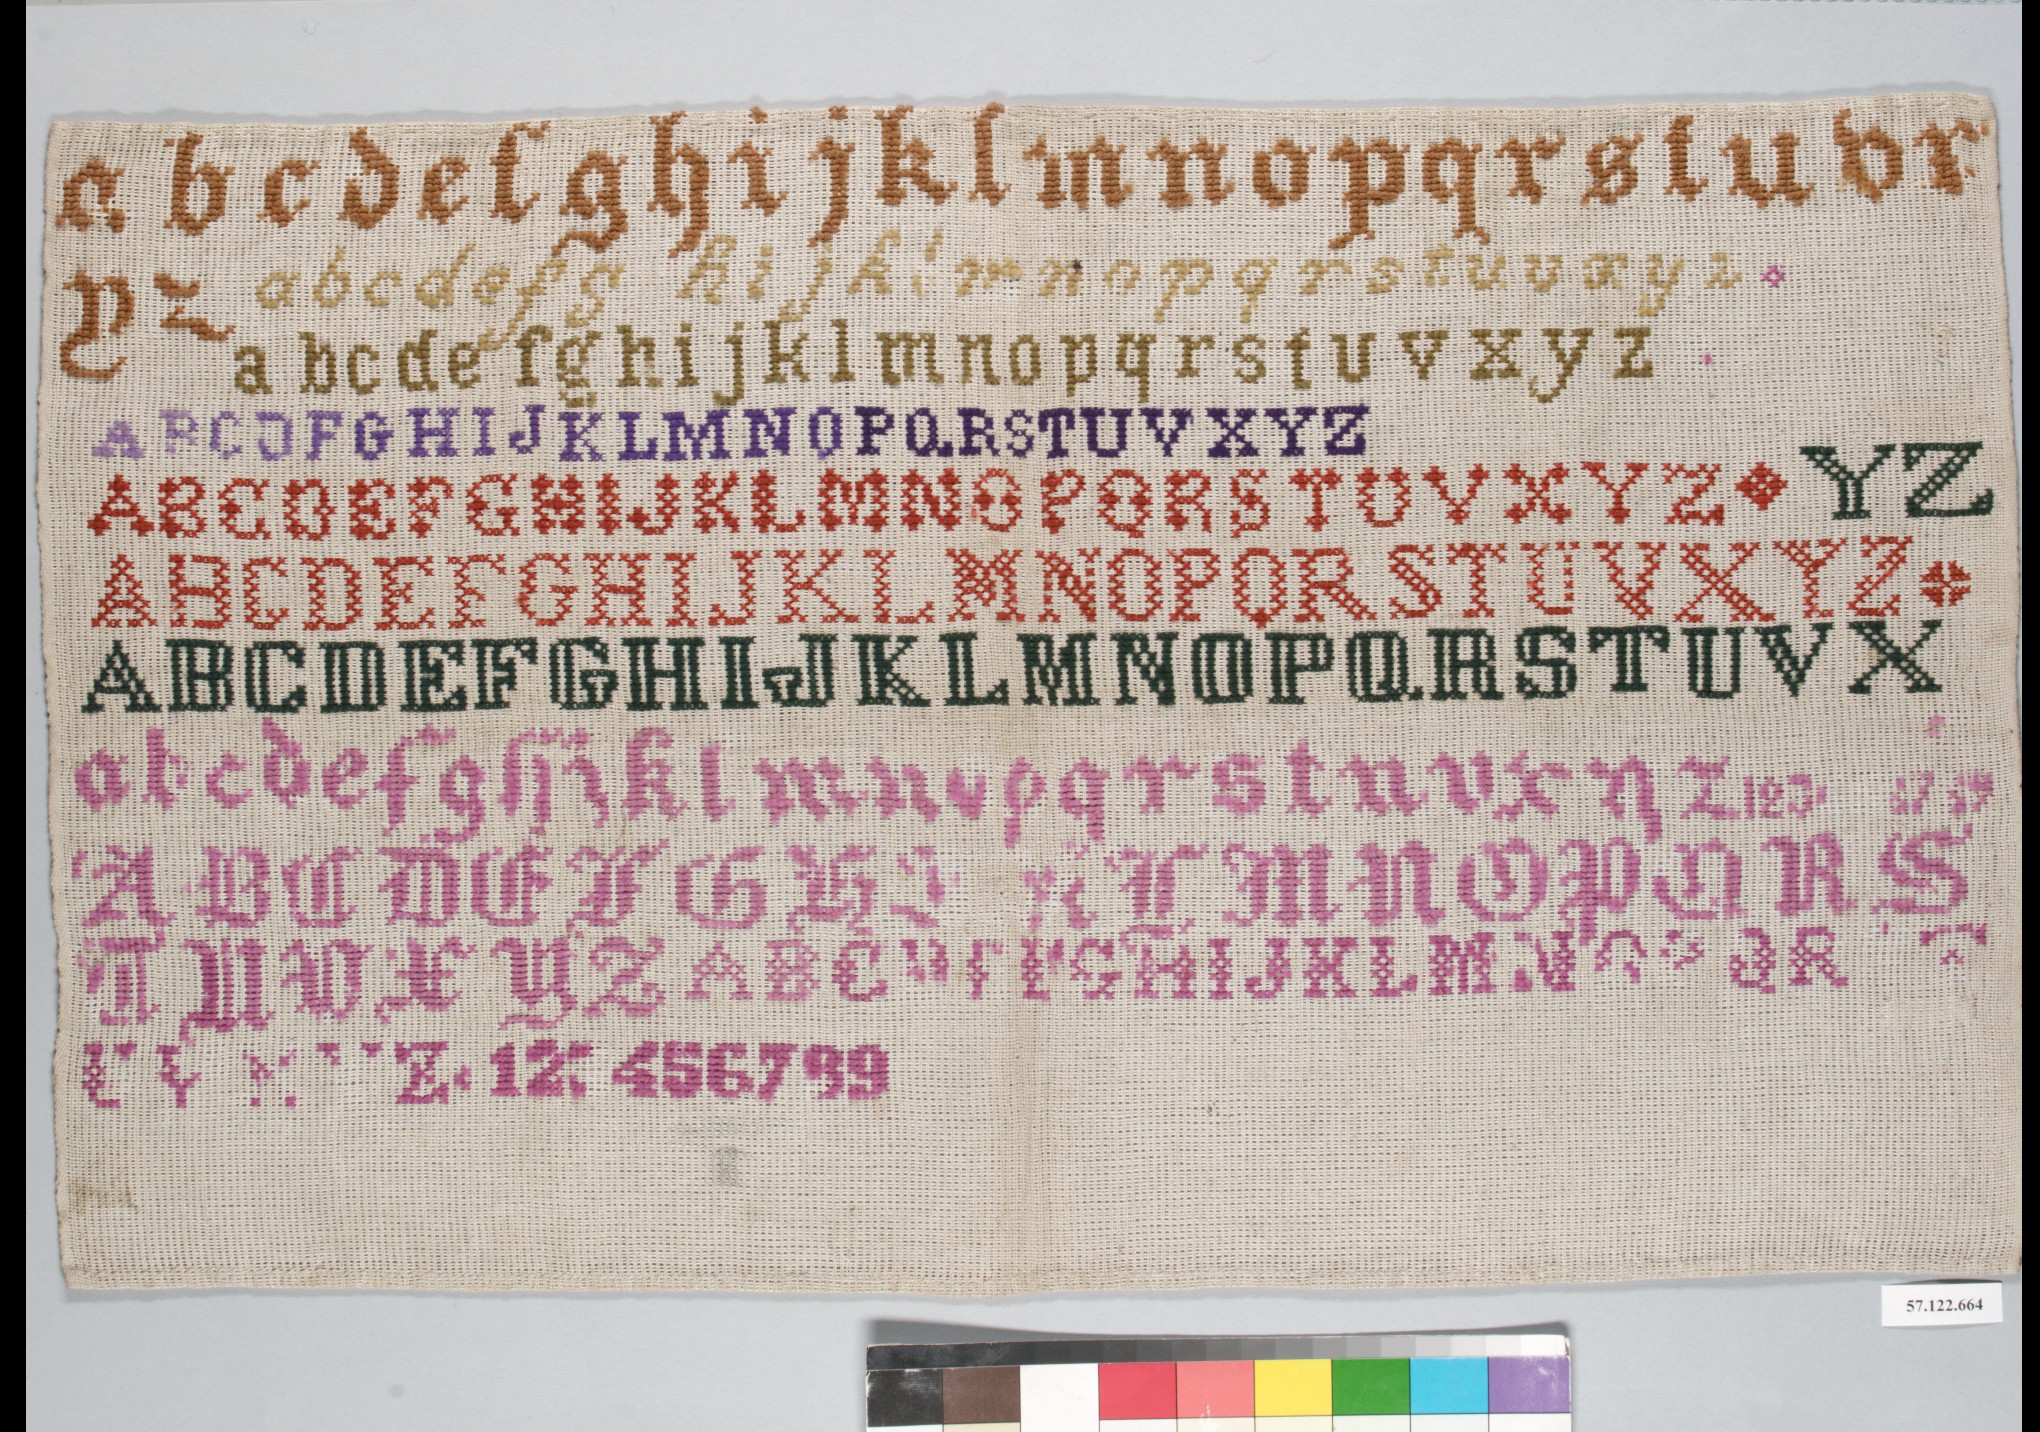 a b c d e f g h i j k l m n o p q r s t u v r
y z
a b c d e f g h i j k l m n o p q r s t u v x y z
a b c d e f g h i j k l m n o p q r s t u v x y z
A B C D F G H I J K L M N O P Q R S T U V X Y Z
A B C D E F G H I J K L M N O P Q R S T U V X Y Z
Y Z
A B C D E F G H I J K L M N O P Q R S T U V X Y Z
A B C D E F G H I J K L M N O P Q R S T U V X
a b c d e f g h j k l m n v p q r s t u v x y z 123
A B C D E F G H I K L M N O P Q R S
T U V X Y Z A B C D F G H I J K L M N Q R T
U V X Z 12 456789
57.122.664